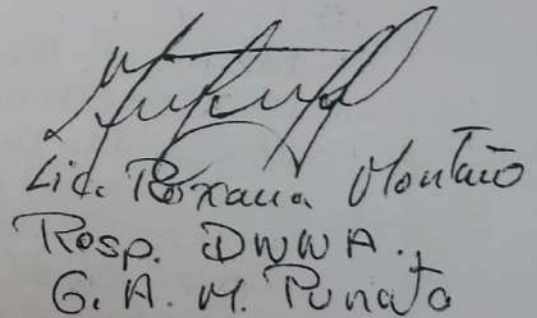 Lic. Roxana Montaño
Resp. DNNA.
G. A. M. Punata